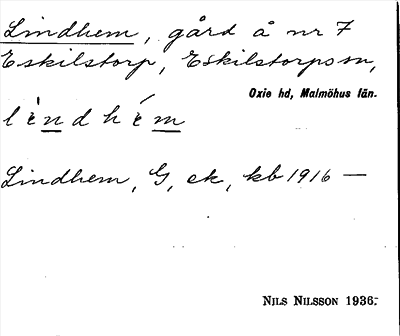 Lindhem, gård å nr 7
Eskilstorp, Eskilstorps sn,
Oxie hd, Malmöhus län.
lìndhém
Lindhem, G, ek, kb 1916 —
NILS NILSSON 1936.